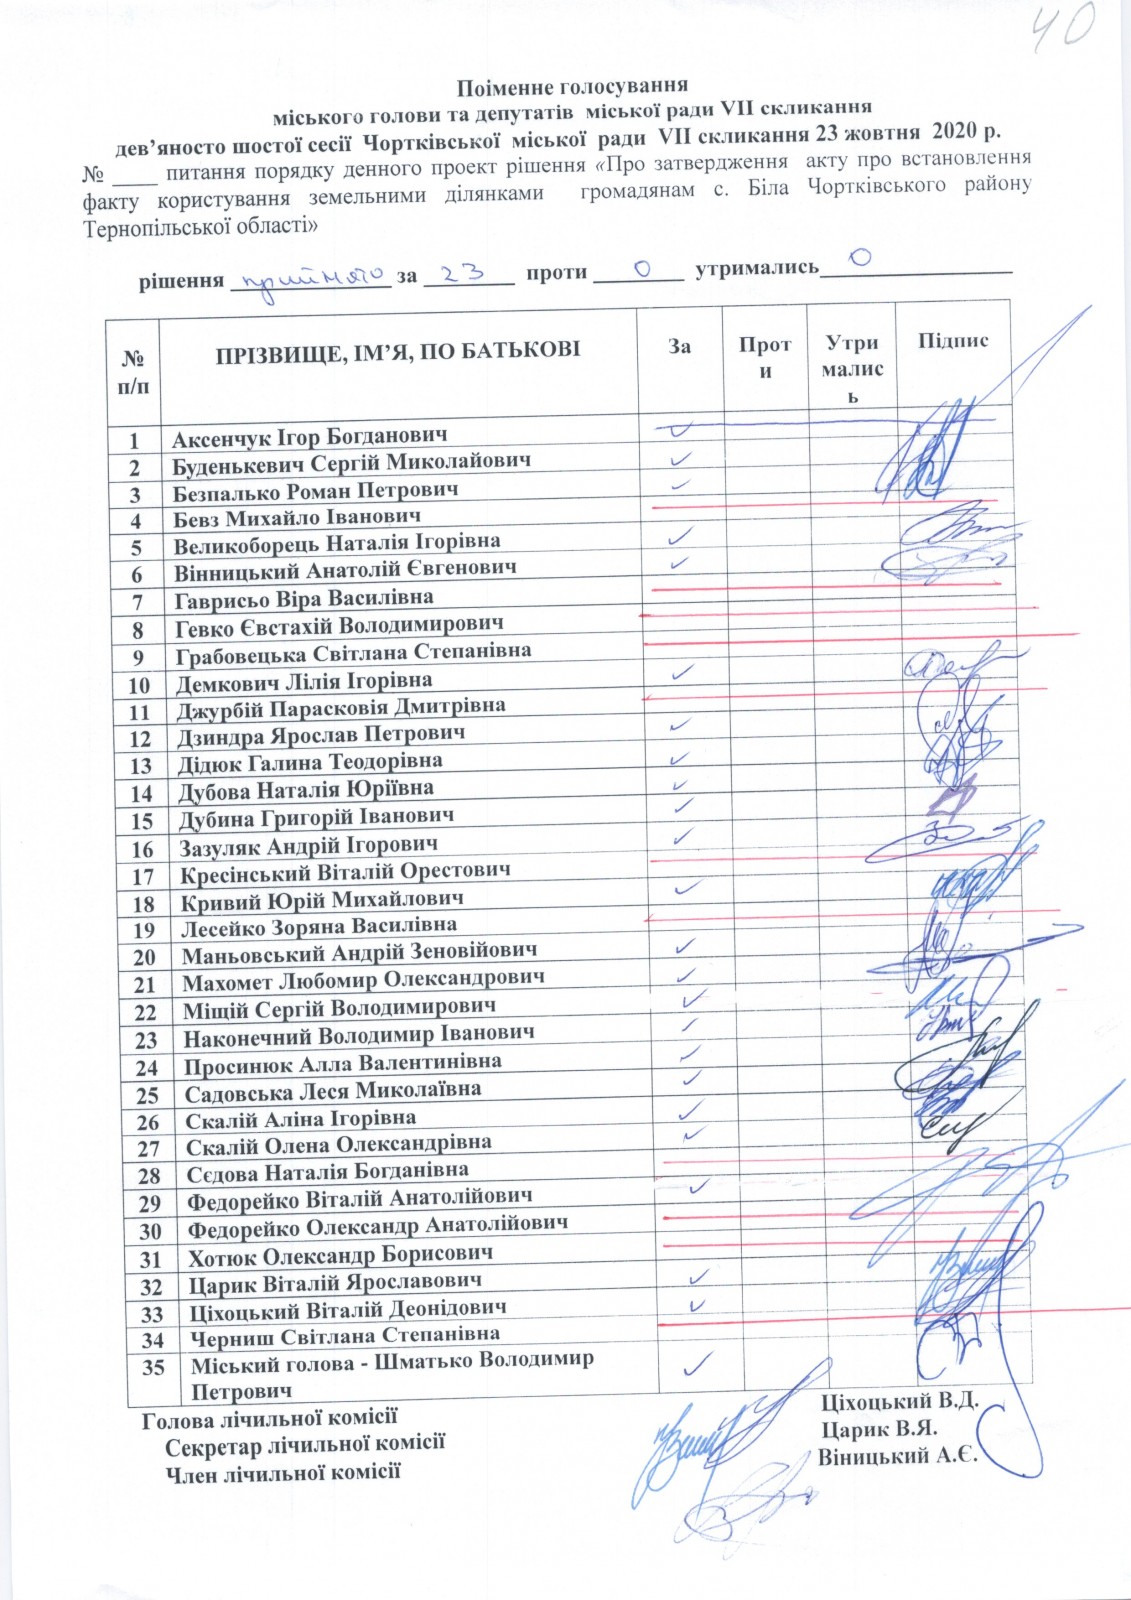 40
Поіменне голосування
міського голови та депутатів міської ради VII скликання
дев’яносто шостої сесії Чортківської міської ради VII скликання 23 жовтня 2020 р.
№ ____ питання порядку денного проект рішення «Про затвердження акту про встановлення
факту користування земельними ділянками громадянам с. Біла Чортківського району
Тернопільської області»
рішення прийнято за 23 проти 0 утримались 0
№ п/п ПРІЗВИЩЕ, ІМ’Я, ПО БАТЬКОВІ За Проти Утрималис ь Підпис
1 Аксенчук Ігор Богданович ✓
2 Буденькевич Сергій Миколайович ✓
3 Безпалько Роман Петрович ✓
4 Бевз Михайло Іванович
5 Великоборець Наталія Ігорівна ✓
6 Вінницький Анатолій Євгенович ✓
7 Гаврисьо Віра Василівна
8 Гевко Євстахій Володимирович
9 Грабовецька Світлана Степанівна
10 Демкович Лілія Ігорівна ✓
11 Джурбій Парасковія Дмитрівна
12 Дзиндра Ярослав Петрович ✓
13 Дідюк Галина Теодорівна ✓
14 Дубова Наталія Юріївна ✓
15 Дубина Григорій Іванович ✓
16 Зазуляк Андрій Ігорович ✓
17 Кресінський Віталій Орестович
18 Кривий Юрій Михайлович ✓
19 Лесейко Зоряна Василівна
20 Маньовський Андрій Зеновійович ✓
21 Махомет Любомир Олександрович ✓
22 Міщій Сергій Володимирович ✓
23 Наконечний Володимир Іванович ✓
24 Просинюк Алла Валентинівна ✓
25 Садовська Леся Миколаївна ✓
26 Скалій Аліна Ігорівна ✓
27 Скалій Олена Олександрівна ✓
28 Сєдова Наталія Богданівна
29 Федорейко Віталій Анатолійович ✓
30 Федорейко Олександр Анатолійович
31 Хотюк Олександр Борисович
32 Царик Віталій Ярославович ✓
33 Ціхоцький Віталій Деонідович ✓
34 Черниш Світлана Степанівна
35 Міський голова - Шматько Володимир
Петрович ✓
Голова лічильної комісії Ціхоцький В.Д.
Секретар лічильної комісії Царик В.Я.
Член лічильної комісії Віницький А.Є.